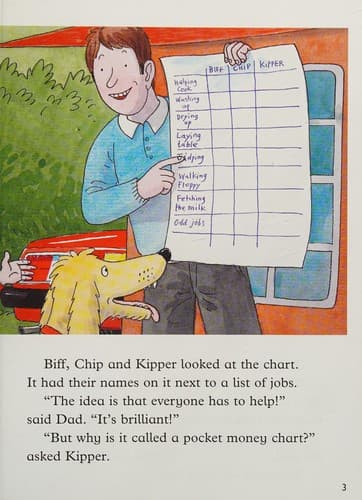 BIFF CHIP KIPPER
Helping
Cook
Washing
up
Drying
up
Laying
table
Tidying
Walking
Floppy
Fetching
the milk
Odd jobs
Biff, Chip and Kipper looked at the chart.
It had their names on it next to a list of jobs.
“The idea is that everyone has to help!”
said Dad. “It’s brilliant!”
“But why is it called a pocket money chart?”
asked Kipper.
3